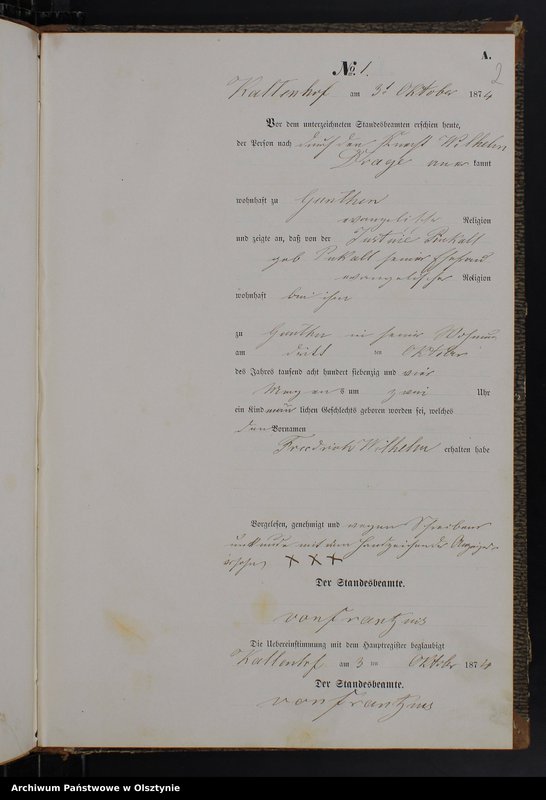 A.
2
No. 1.
Kaltenhof am 3t Oktober 1874
Vor dem unterzeichneten Standesbeamten erschien heute,
der Person nach durch den Knecht Wilhelm
Krage aner kannt
wohnhaft zu Gunthen
evangelischer Religion
und zeigte an, daß von der Justine
geb. seiner Ehefrau
evangelischer Religion
wohnhaft bei ihm
zu Gunthen in seiner Wohnung
am dritt ten Oktober
des Jahres tausend acht hundert siebenzig und vier
Morgens um zwei Uhr
ein Kind män lichen Geschlechts geboren worden sei, welches
den Vornamen
Friedrich Wilhelm erhalten habe
Vorgelesen, genehmigt und wegen Schreibens
unkunde mit dem Handzeichen des
versehen XXX
Der Standesbeamte.
von Frantzius
Die Uebereinstimmung mit dem Hauptregister beglaubigt
Kaltenhof am 3 ten Oktober 1874
Der Standesbeamte.
von Frantzius
Archiwum Państwowe w Olsztynie